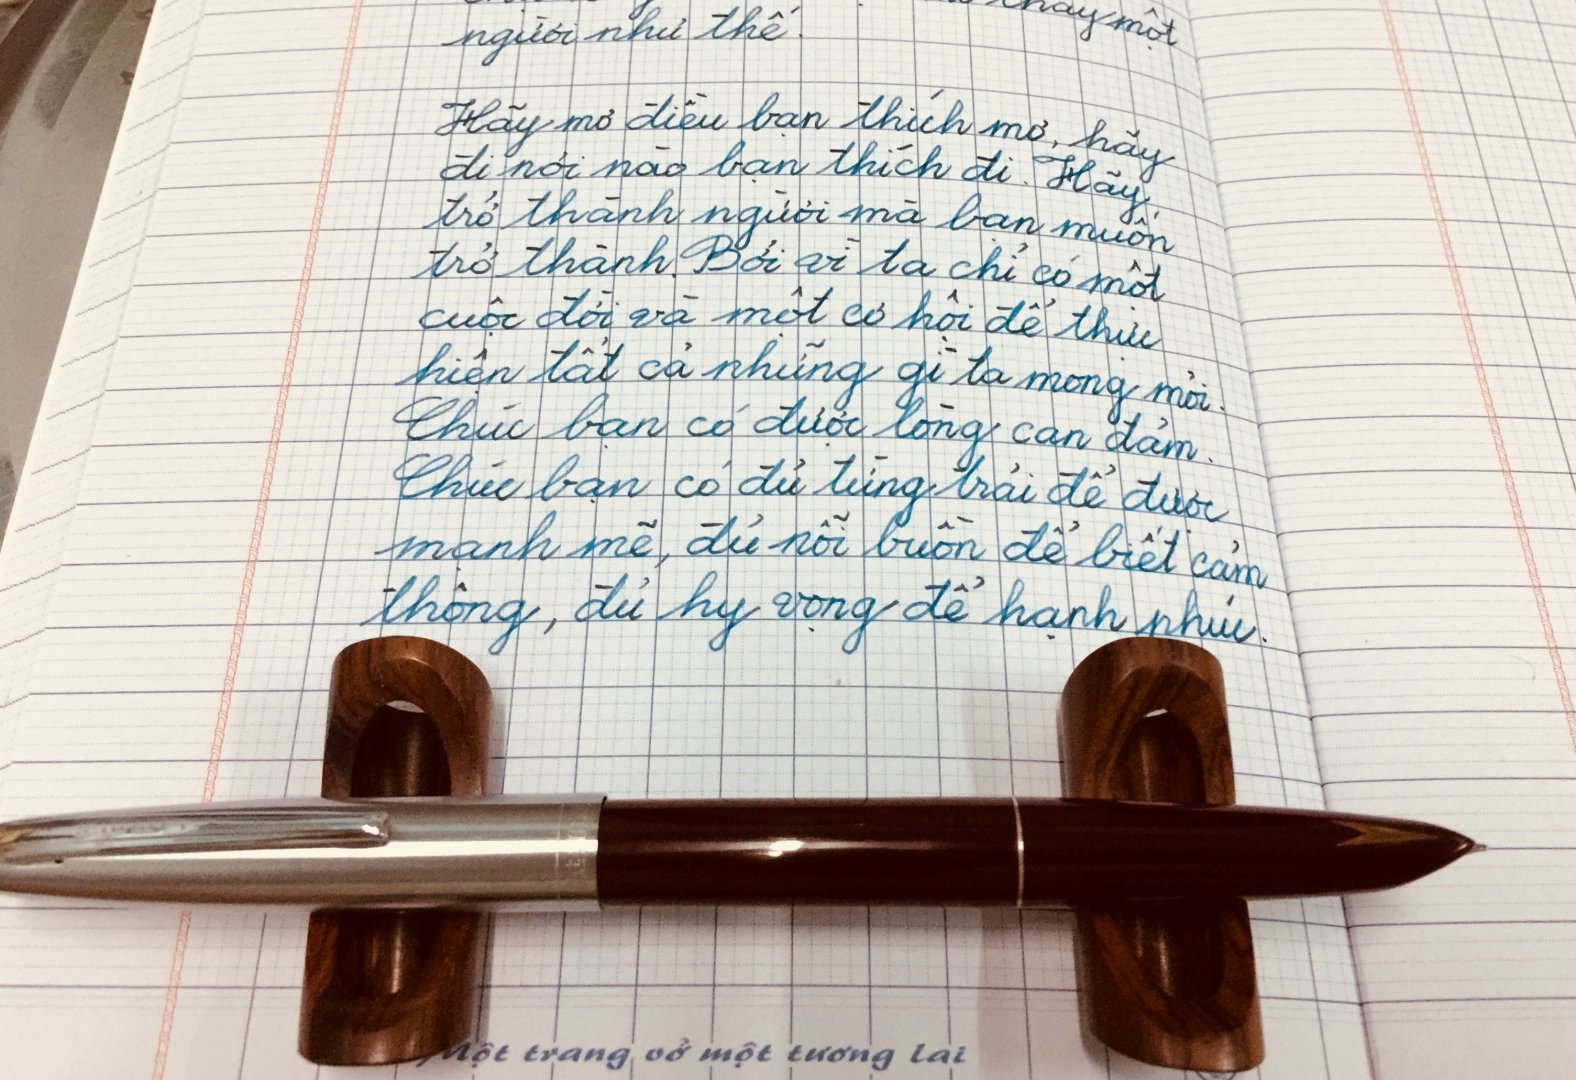 thấy một
người như thế.
Hãy mơ điều bạn thích mơ, hãy
đi nơi nào bạn thích đi. Hãy
trở thành người mà bạn muốn
trở thành. Bởi vì ta chỉ có một
cuộc đời và một cơ hội để thực
hiện tất cả những gì ta mong mỏi.
Chúc bạn có được lòng can đảm.
Chúc bạn có đủ từng trải để được
mạnh mẽ, đủ nỗi buồn để biết cảm
thông, đủ hy vọng để hạnh phúc.
Một trang vở một tương lai